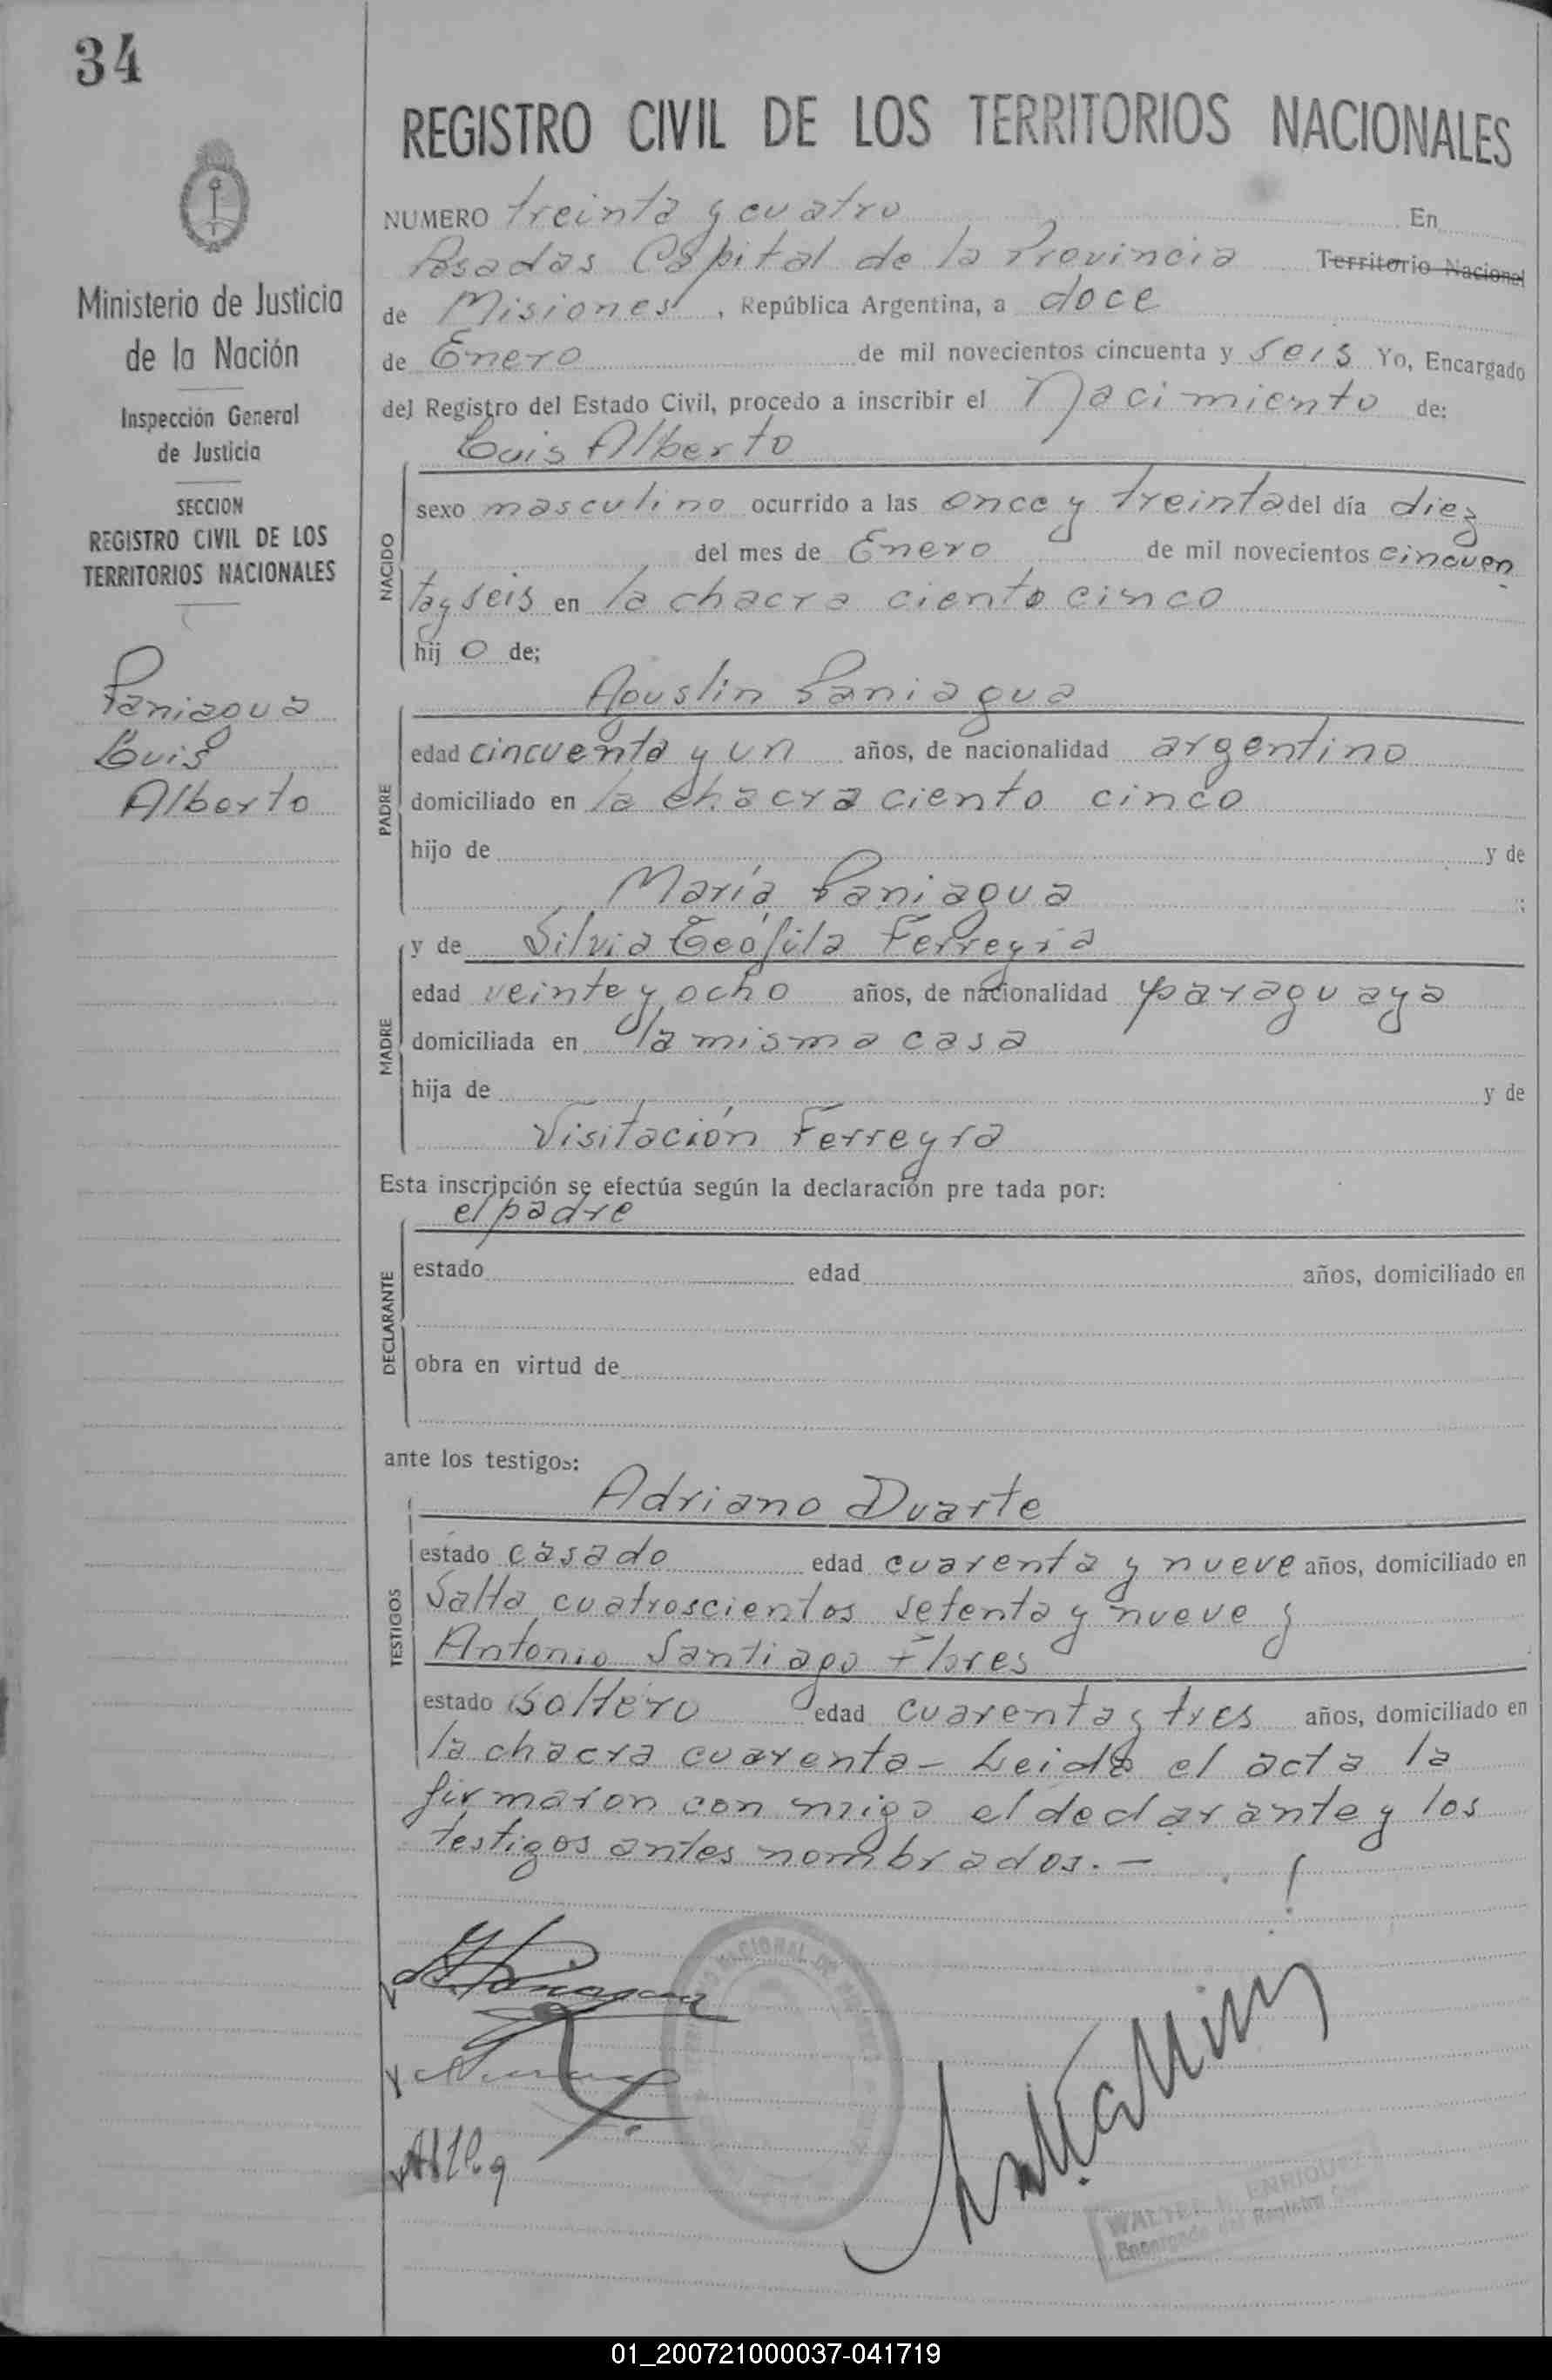 34
Ministerio de Justicia
de la Nación
Inspección General
de Justicia
SECCION
REGISTRO CIVIL DE LOS
TERRITORIOS NACIONALES
Paniagua
Luis
Alberto
REGISTRO CIVIL DE LOS TERRITORIOS NACIONALES
NUMERO treinta y cuatro En
Posadas Capital de la Provincia Territorio Nacional
de Misiones, República Argentina, a doce
de Enero de mil novecientos cincuenta y seis Yo, Encargado
del Registro del Estado Civil, procedo a inscribir el Nacimiento de:
Luis Alberto
NACIDO
sexo masculino ocurrido a las once y treinta del día diez
del mes de Enero de mil novecientos cincuen
ta y seis en la chacra ciento cinco
hij o de;
Agustin Paniagua
PADRE
edad cincuenta y un años, de nacionalidad argentino
domiciliado en la chacra ciento cinco
hijo de y de
María Paniagua
y de Silvia Teófila Ferreyra
MADRE
edad veinte y ocho años, de nacionalidad paraguaya
domiciliada en la misma casa
hija de y de
Visitación Ferreyra
Esta inscripción se efectúa según la declaración pre tada por:
el padre
DECLARANTE
estado edad años, domiciliado en
obra en virtud de
ante los testigos:
Adriano Duarte
TESTIGOS
estado casado edad cuarenta y nueve años, domiciliado en
Salta cuatroscientos setenta y nueve y
Antonio Santiago Flores
estado soltero edad cuarenta y tres años, domiciliado en
la chacra cuarenta - Leida el acta la
firmaron con migo el declarante y los
testigos antes nombrados. -
ENRIQUE
Encargado del Registro
01_200721000037-041719